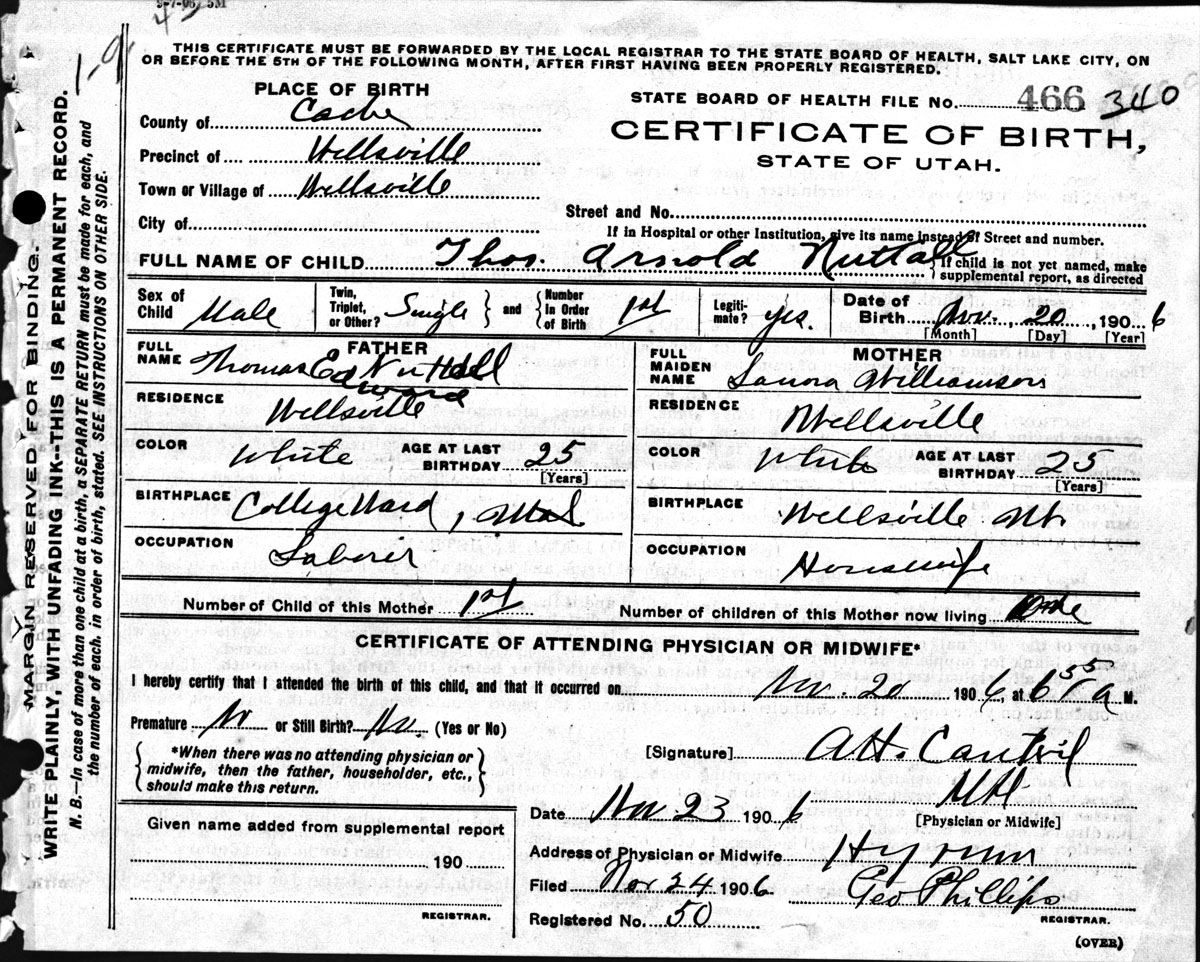 THIS CERTIFICATE MUST BE FORWARDED BY THE LOCAL REGISTRAR TO THE STATE BOARD OF HEALTH, SALT LAKE CITY, ON
OR BEFORE THE 5TH OF THE FOLLOWING MONTH, AFTER FIRST HAVING BEEN PROPERLY REGISTERED.
PLACE OF BIRTH
County of Cache
Precinct of Wellsville
Town or Village of Wellsville
City of
STATE BOARD OF HEALTH FILE No. 466 340
CERTIFICATE OF BIRTH,
STATE OF UTAH.
Street and No.
If in Hospital or other Institution, give its name instead of Street and number.
FULL NAME OF CHILD Thos. Arnold Nuttall
If child is not yet named, make
supplemental report, as directed
Sex of Child Male
Twin, Triplet, or Other? Single and Number In Order of Birth 1st
Legitimate? yes.
Date of Birth Nov. 20, 1906
[Month] [Day] [Year]
FATHER
FULL NAME Thomas Edward Nuttall
RESIDENCE Wellsville
COLOR White AGE AT LAST BIRTHDAY 25
[Years]
BIRTHPLACE College Ward, Utah
OCCUPATION Laborer
MOTHER
FULL MAIDEN NAME Williamson
RESIDENCE Wellsville
COLOR White AGE AT LAST BIRTHDAY 25
[Years]
BIRTHPLACE Wellsville Ut.
OCCUPATION Housewife
Number of Child of this Mother 1st Number of children of this Mother now living One
CERTIFICATE OF ATTENDING PHYSICIAN OR MIDWIFE*
I hereby certify that I attended the birth of this child, and that it occurred on Nov. 20 1906 at 6 55 a M.
Premature No or Still Birth? No (Yes or No)
*When there was no attending physician or
midwife, then the father, householder, etc.,
should make this return.
Given name added from supplemental report
190
REGISTRAR.
[Signature] A.H. Cantril
MD
[Physician or Midwife]
Date Nov 23 1906
Address of Physician or Midwife Hyrum
Filed Nov 24 1906 Geo Phillips
REGISTRAR.
Registered No. 50
(OVER)
MARGIN RESERVED FOR BINDING.
WRITE PLAINLY, WITH UNFADING INK-THIS IS A PERMANENT RECORD.
N. B.—In case of more than one child at a birth, a SEPARATE RETURN must be made for each, and
the number of each, in order of birth, stated. SEE INSTRUCTIONS ON OTHER SIDE.